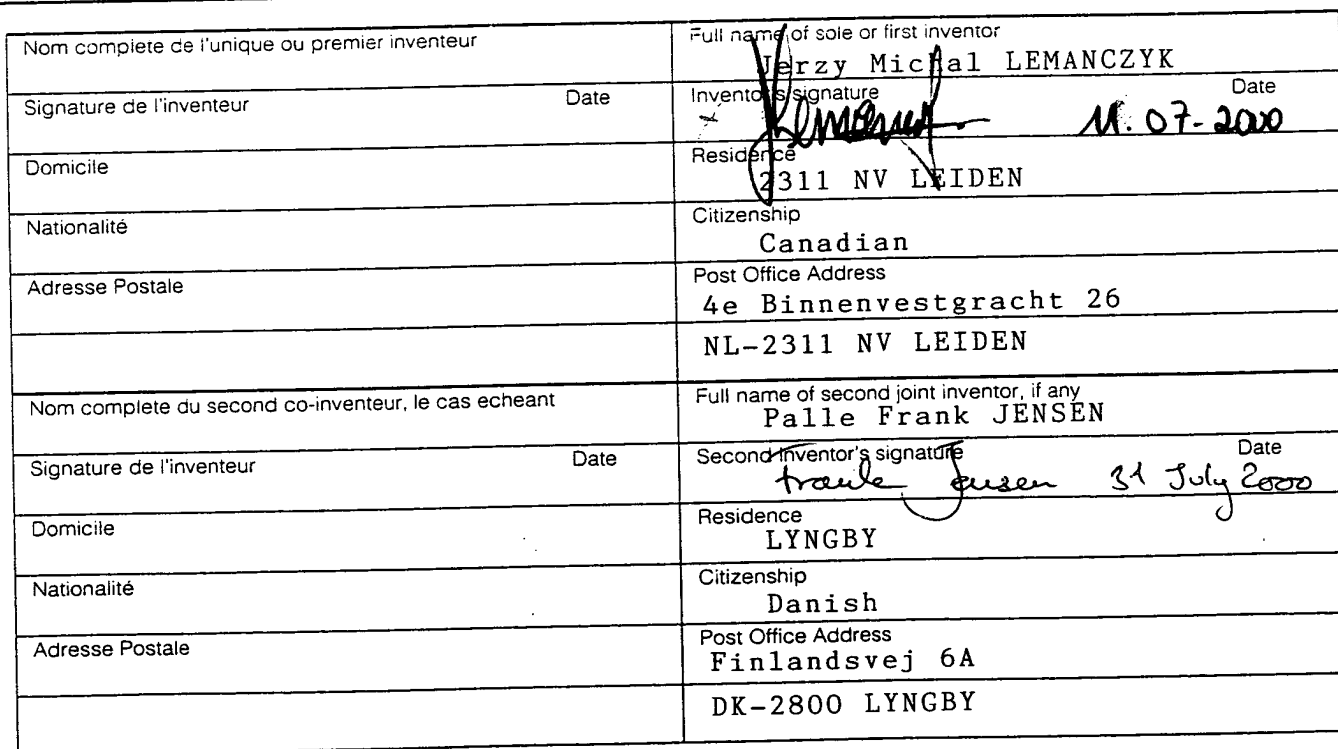 Nom complete de l'unique ou premier inventeur
Full name of sole or first inventor
Jerzy Michal LEMANCZYK
Signature de l'inventeur Date
Inventor's signature Date
11. 07-2000
Domicile
Residence
2311 NV LEIDEN
Nationalité
Citizenship
Canadian
Adresse Postale
Post Office Address
4e Binnenvestgracht 26
NL-2311 NV LEIDEN
Nom complete du second co-inventeur, le cas echeant
Full name of second joint inventor, if any
Palle Frank JENSEN
Signature de l'inventeur Date
Second Inventor's signature Date
Frank Jensen 31 July 2000
Domicile
Residence
LYNGBY
Nationalité
Citizenship
Danish
Adresse Postale
Post Office Address
Finlandsvej 6A
DK-2800 LYNGBY